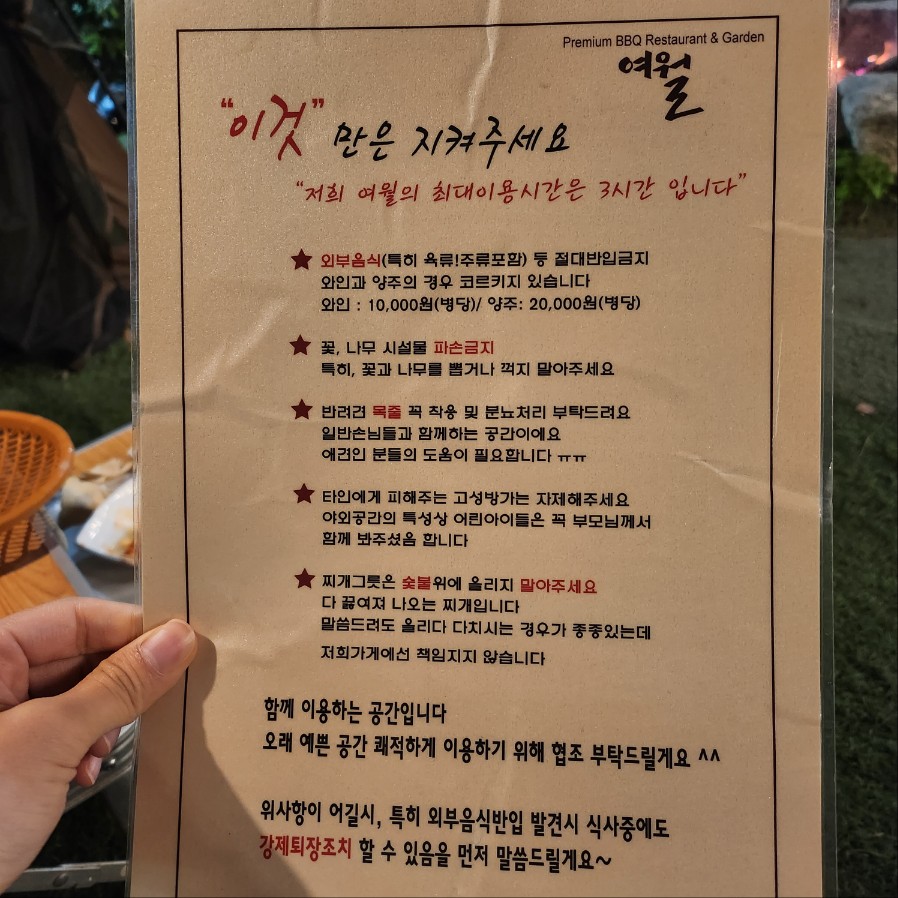 Premium BBQ Restaurant & Garden
여월
"이것" 만은 지켜주세요
"저희 여월의 최대이용시간은 3시간 입니다"
★ 외부음식(특히 육류!주류포함) 등 절대반입금지
와인과 양주의 경우 코르키지 있습니다
와인 : 10,000원(병당)/ 양주: 20,000원(병당)
★ 꽃, 나무 시설물 파손금지
특히, 꽃과 나무를 뽑거나 꺽지 말아주세요
★ 반려견 목줄 꼭 착용 및 분뇨처리 부탁드려요
일반손님들과 함께하는 공간이에요
애견인 분들의 도움이 필요합니다 ㅠㅠ
★ 타인에게 피해주는 고성방가는 자제해주세요
야외공간의 특성상 어린아이들은 꼭 부모님께서
함께 봐주셨음 합니다
★ 찌개그릇은 숯불위에 올리지 말아주세요
다 끓여져 나오는 찌개입니다
말씀드려도 올리다 다치시는 경우가 종종있는데
저희가게에선 책임지지 않습니다
함께 이용하는 공간입니다
오래 예쁜 공간 쾌적하게 이용하기 위해 협조 부탁드릴게요 ^^
위사항이 어길시, 특히 외부음식반입 발견시 식사중에도
강제퇴장조치 할 수 있음을 먼저 말씀드릴게요~